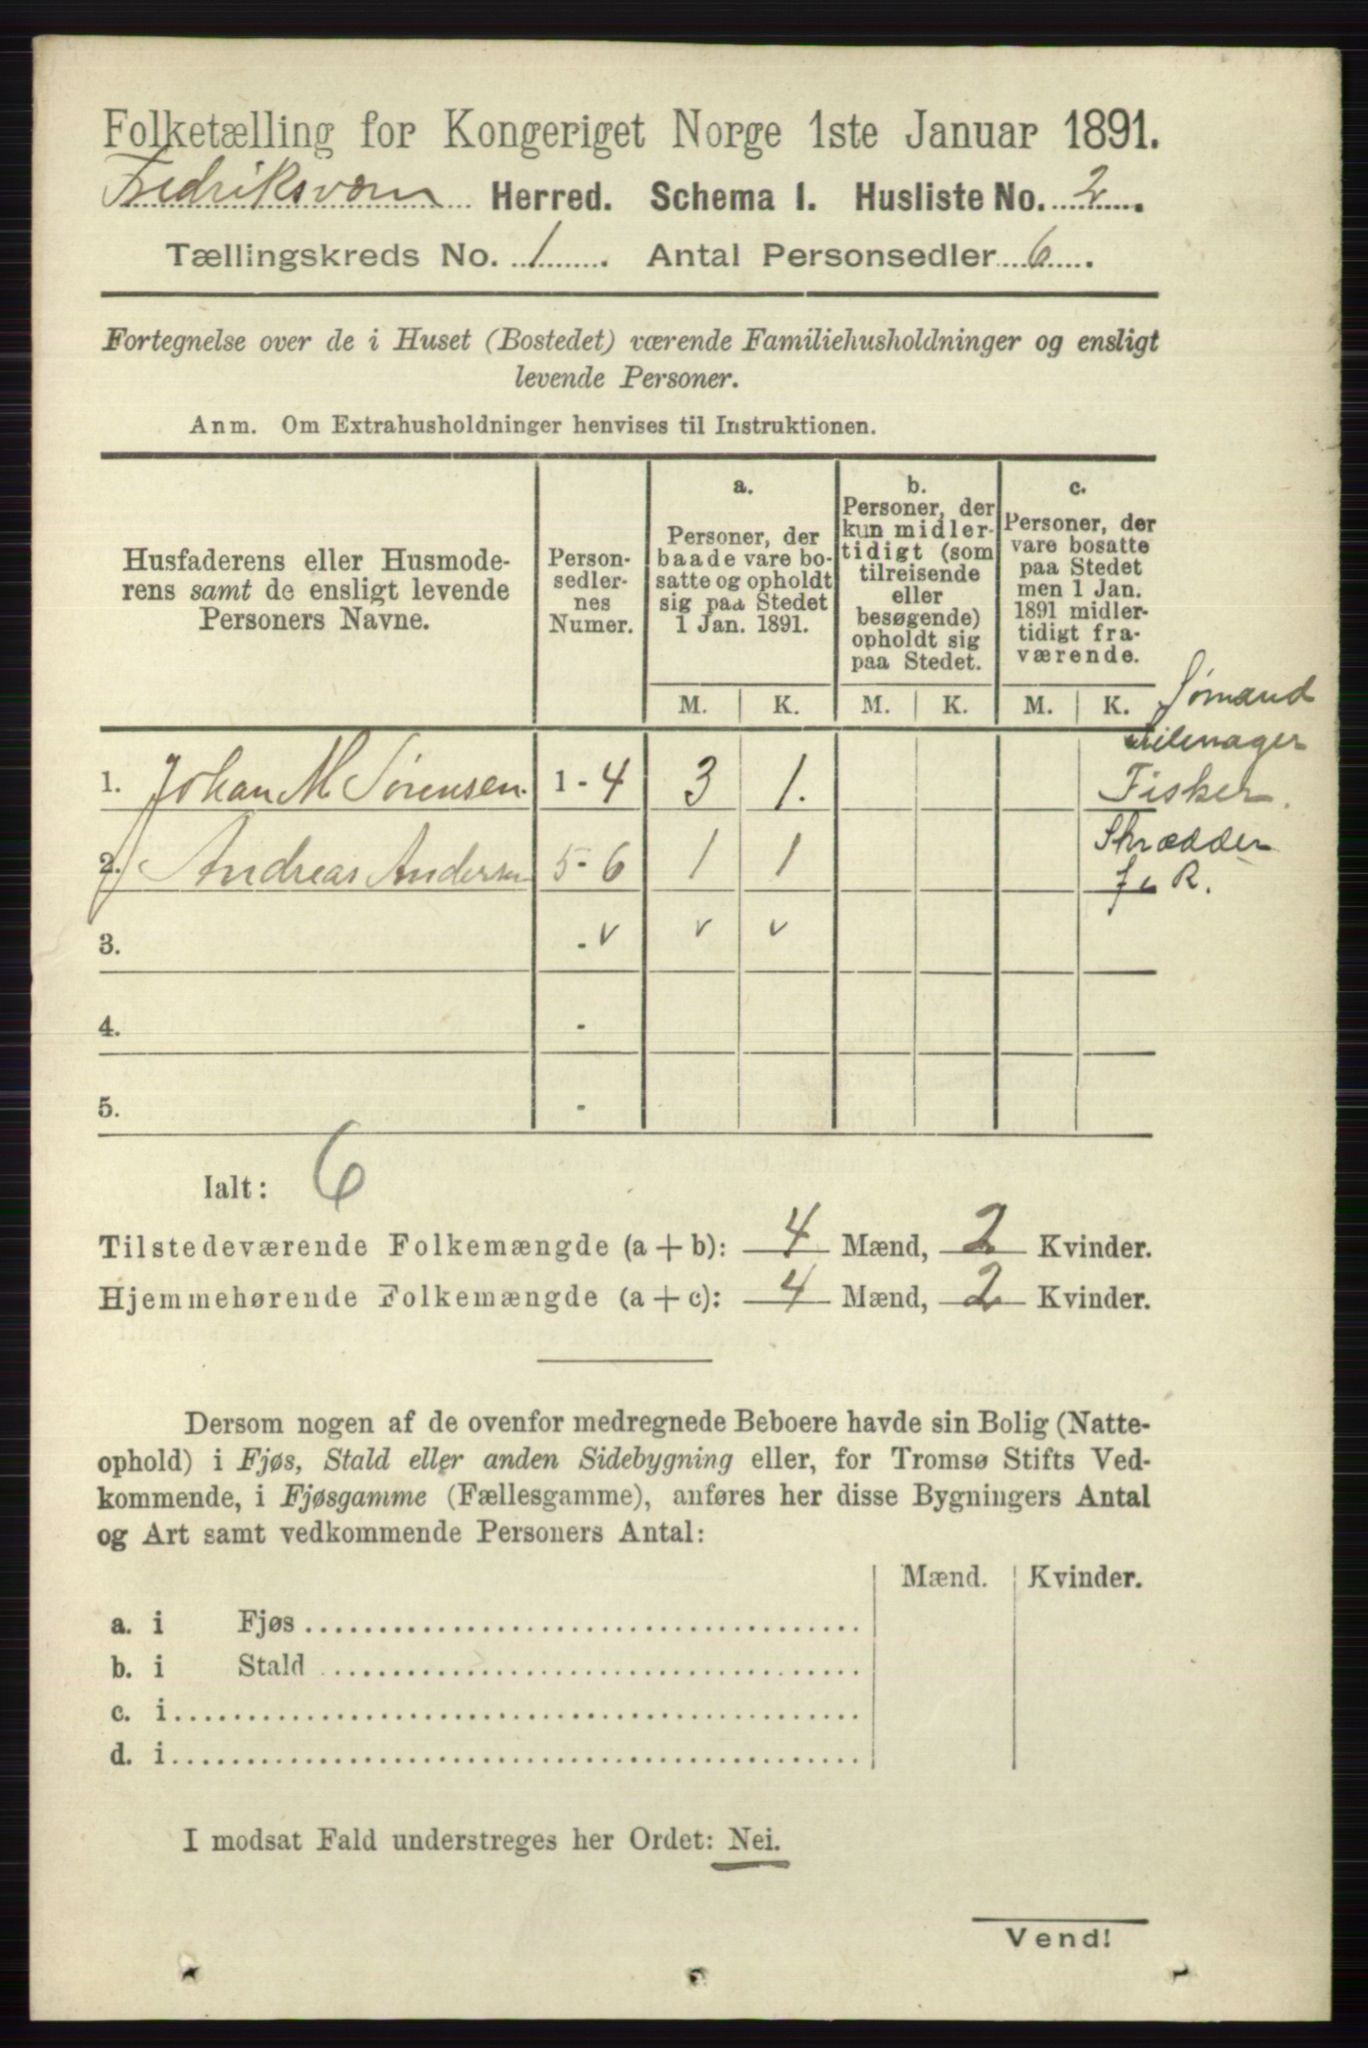 Folketælling for Kongeriget Norge 1ste Januar 1891.
Fredriksværn Herred. Schema I. Husliste No. 2.
Tællingskreds No. 1. Antal Personsedler 6.
Fortegnelse over de i Huset (Bostedet) værende Familiehusholdninger og ensligt
levende Personer.
Anm. Om Extrahusholdninger henvises til Instruktionen.
Husfaderens eller Husmode-
rens samt de ensligt levende
Personers Navne.
Person-
sedler-
nes
Numer.
a.
Personer, der
baade vare bo-
satte og opholdt
sig paa Stedet
1 Jan. 1891.
b.
Personer, der
kun midler-
tidigt (som
tilreisende
eller
besøgende)
opholdt sig
paa Stedet.
c.
Personer, der
vare bosatte
paa Stedet
men 1 Jan.
1891 midler-
tidigt fra-
værende.
M. K. M. K. M. K.
Sømand
1. Johan M Sørensen. 1-4 3 1. Fisker.
2. Andreas Andersen 5-6 1 1 Skrædder
f. R.
3. - v v v
4. -
5. -
Ialt: 6
Tilstedeværende Folkemængde (a + b): 4 Mænd, 2 Kvinder.
Hjemmehørende Folkemængde (a + c): 4 Mænd, 2 Kvinder.
Dersom nogen af de ovenfor medregnede Beboere havde sin Bolig (Natte-
ophold) i Fjøs, Stald eller anden Sidebygning eller, for Tromsø Stifts Ved-
kommende, i Fjøsgamme (Fællesgamme), anføres her disse Bygningers Antal
og Art samt vedkommende Personers Antal:
Mænd. Kvinder.
a. i Fjøs
b. i Stald
c. i
d. i
I modsat Fald understreges her Ordet: Nei.
Vend!